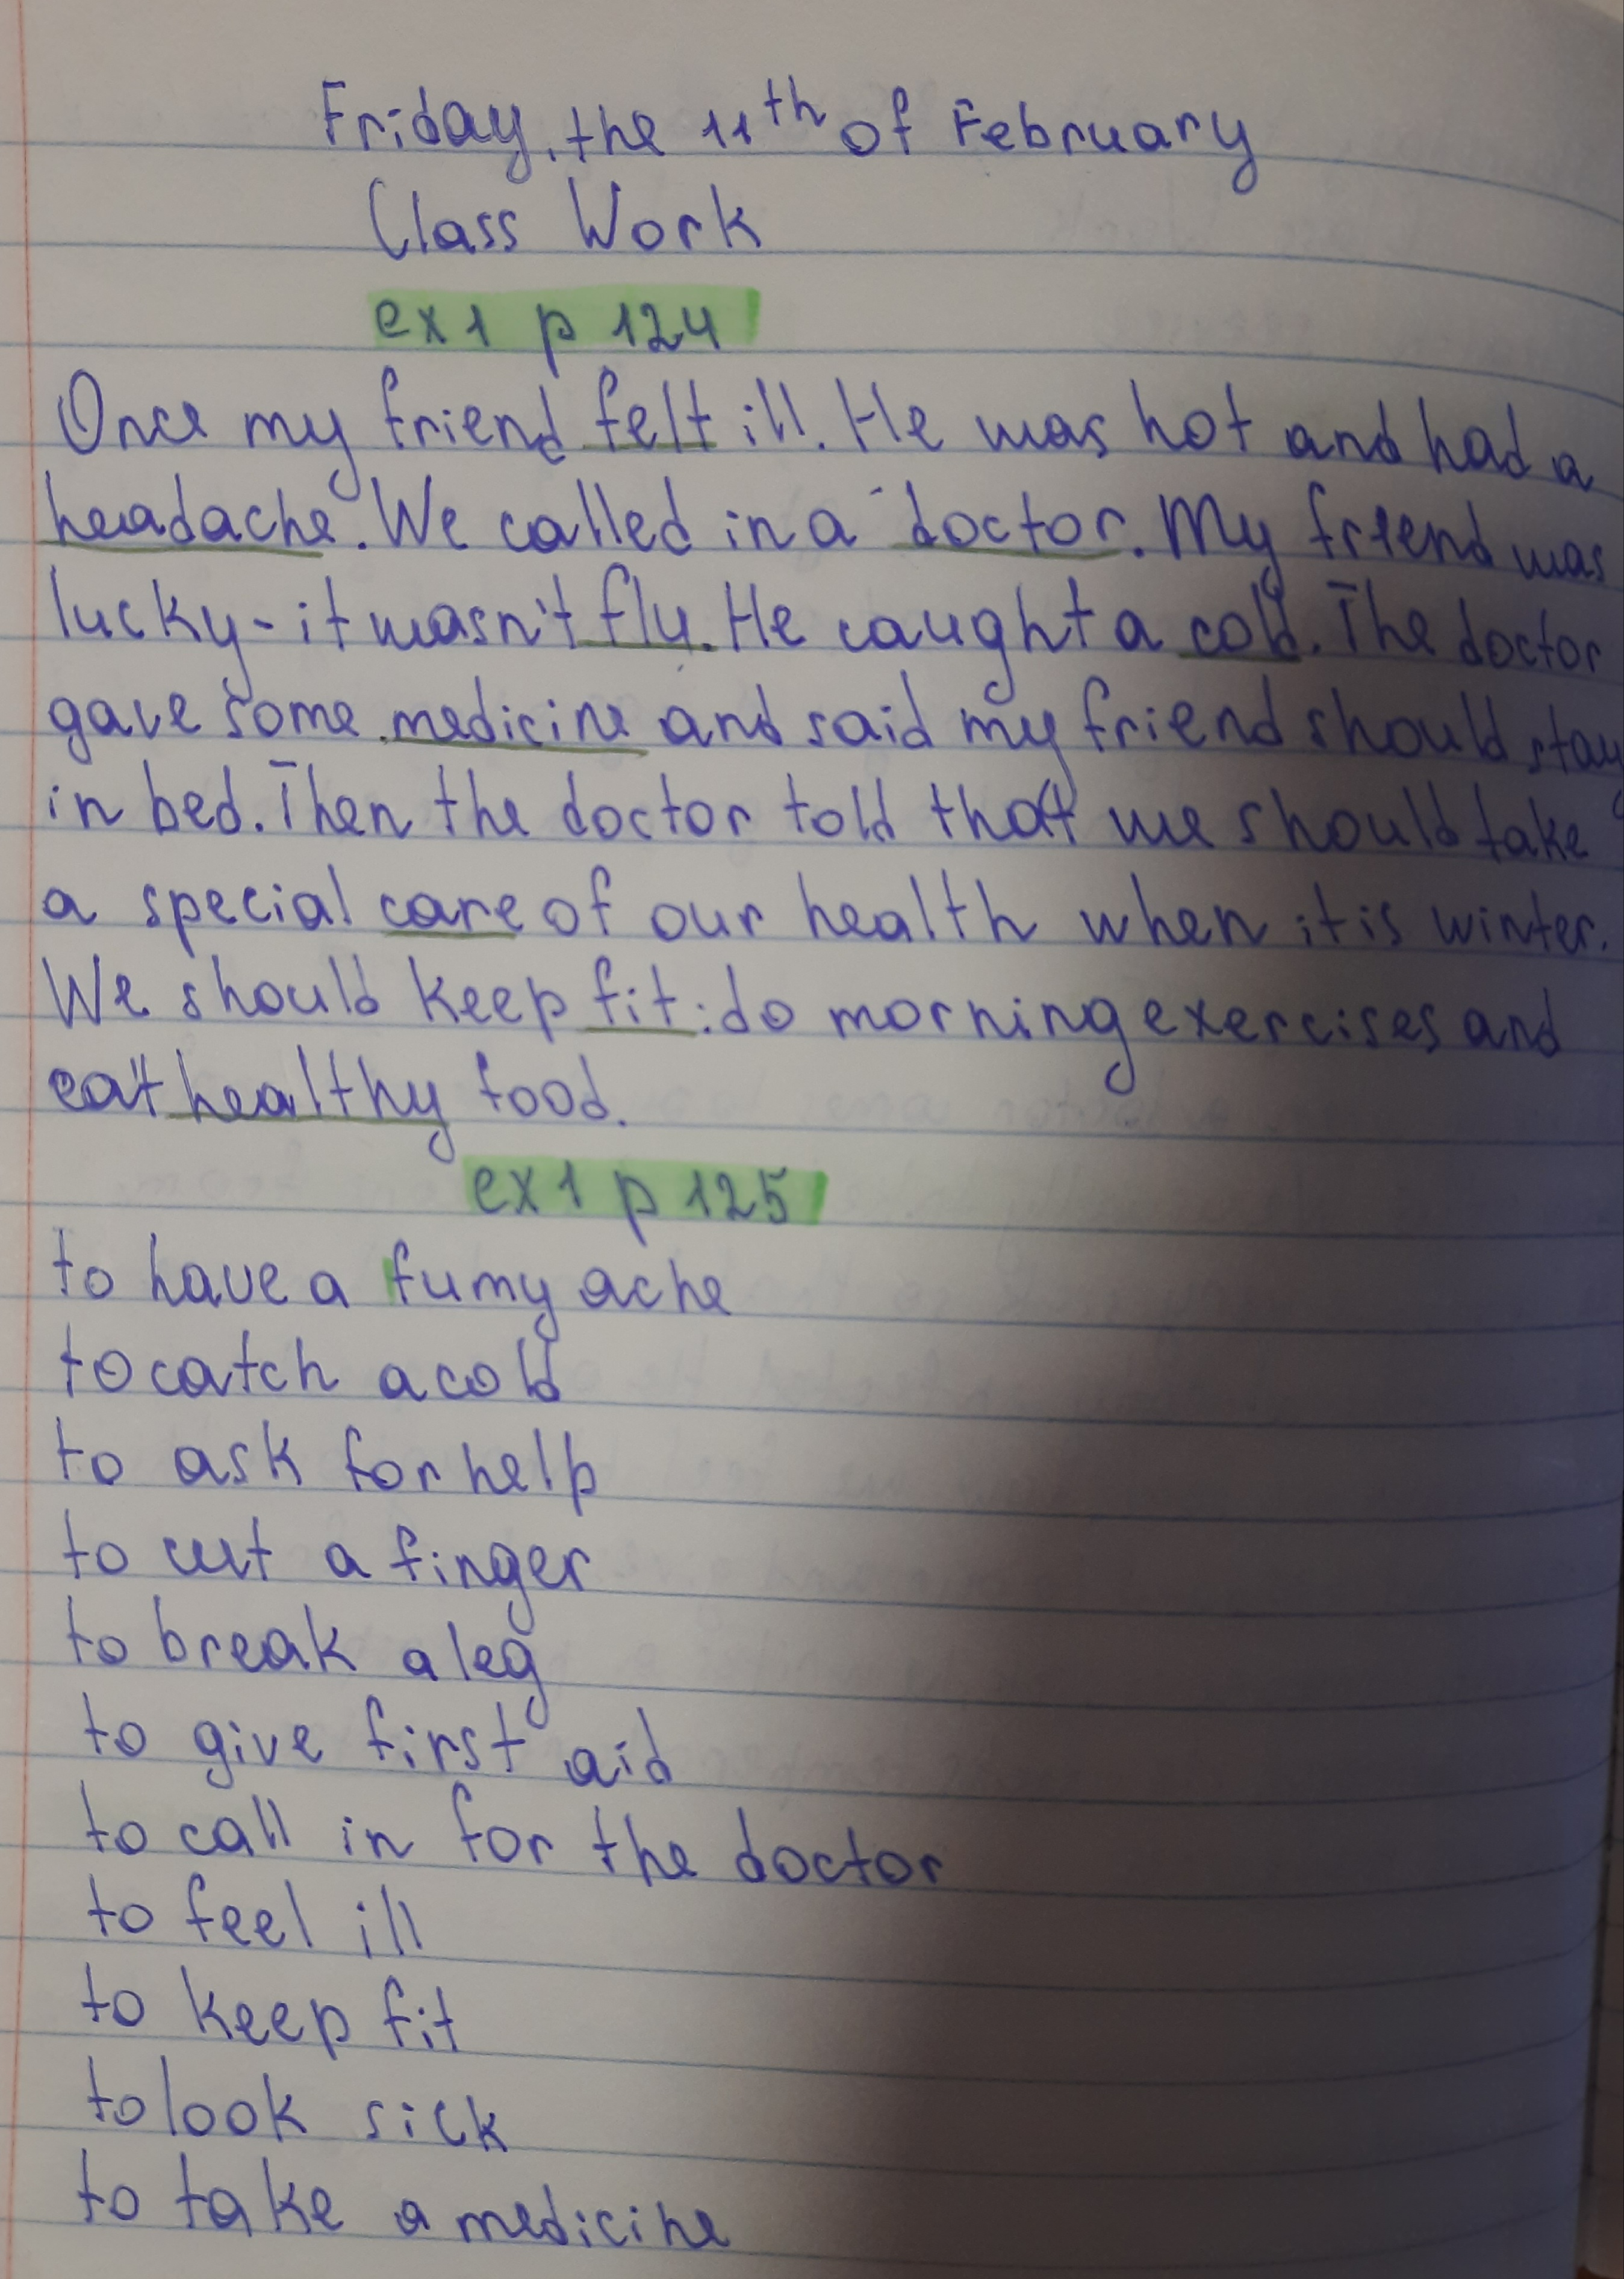 Friday, the 11th of February
Class Work
ex 1 p 124
Once my friend felt ill. He was hot and had a
headache. We called in a doctor. My friend was
lucky - it wasn't fly. He caught a cold. The doctor
gave some medicine and said my friend should stay
in bed. Then the doctor told that we should take
a special care of our health when it is winter.
We should keep fit: do morning exercises and
eat healthy food.
ex 1 p 125
to have a tumy ache
to catch a cold
to ask for help
to cut a finger
to break a leg
to give first aid
to call in for the doctor
to feel ill
to keep fit
to look sick
to take a medicine